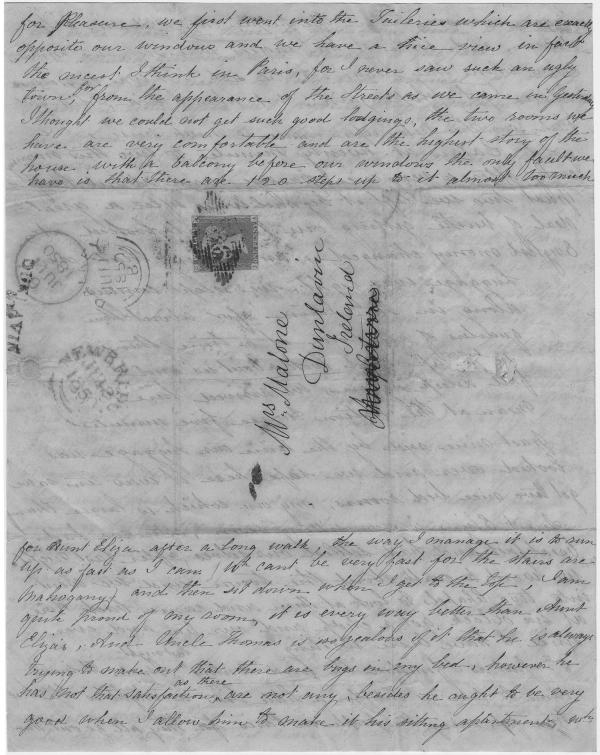 for Pleasure, we first went into the Tuileries which are exactly
opposite our windows and we have a nice view in fact
the nicest I think in Paris, for I never saw such an ugly
town, for from the appearance of the Streets as we came in yesterday
I thought we could not get such good lodgings, the two rooms we
have are very comfortable and are the highest story of the
house, with a balcony before our windows the only fault we
have is that there are 120 steps up to it almost too much
Mrs. Malone
Dunlavin
Ireland
NEWBRI
for Aunt Eliza after a long walk, the way I manage it is to run
up as fast as I can (wh cant be very fast for the stairs are
Mahogany) and then sit down when I get to the top, I am
quite proud of my room, it is every way better than Aunt
Elizas, And Uncle Thomas is so jealous of it that he is always
trying to make out that there are bugs in my bed, however he
has not that satisfaction, as there are not any, besides he ought to be very
good when I allow him to make it his sitting apartment, wh